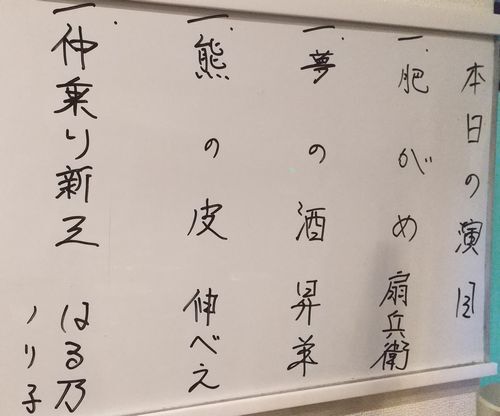 本日の演目
一.肥がめ 扇兵衛
一.夢の酒 昇羊
一.熊の皮 伸べえ
一.仲乗り新三 はる乃
ノリ子